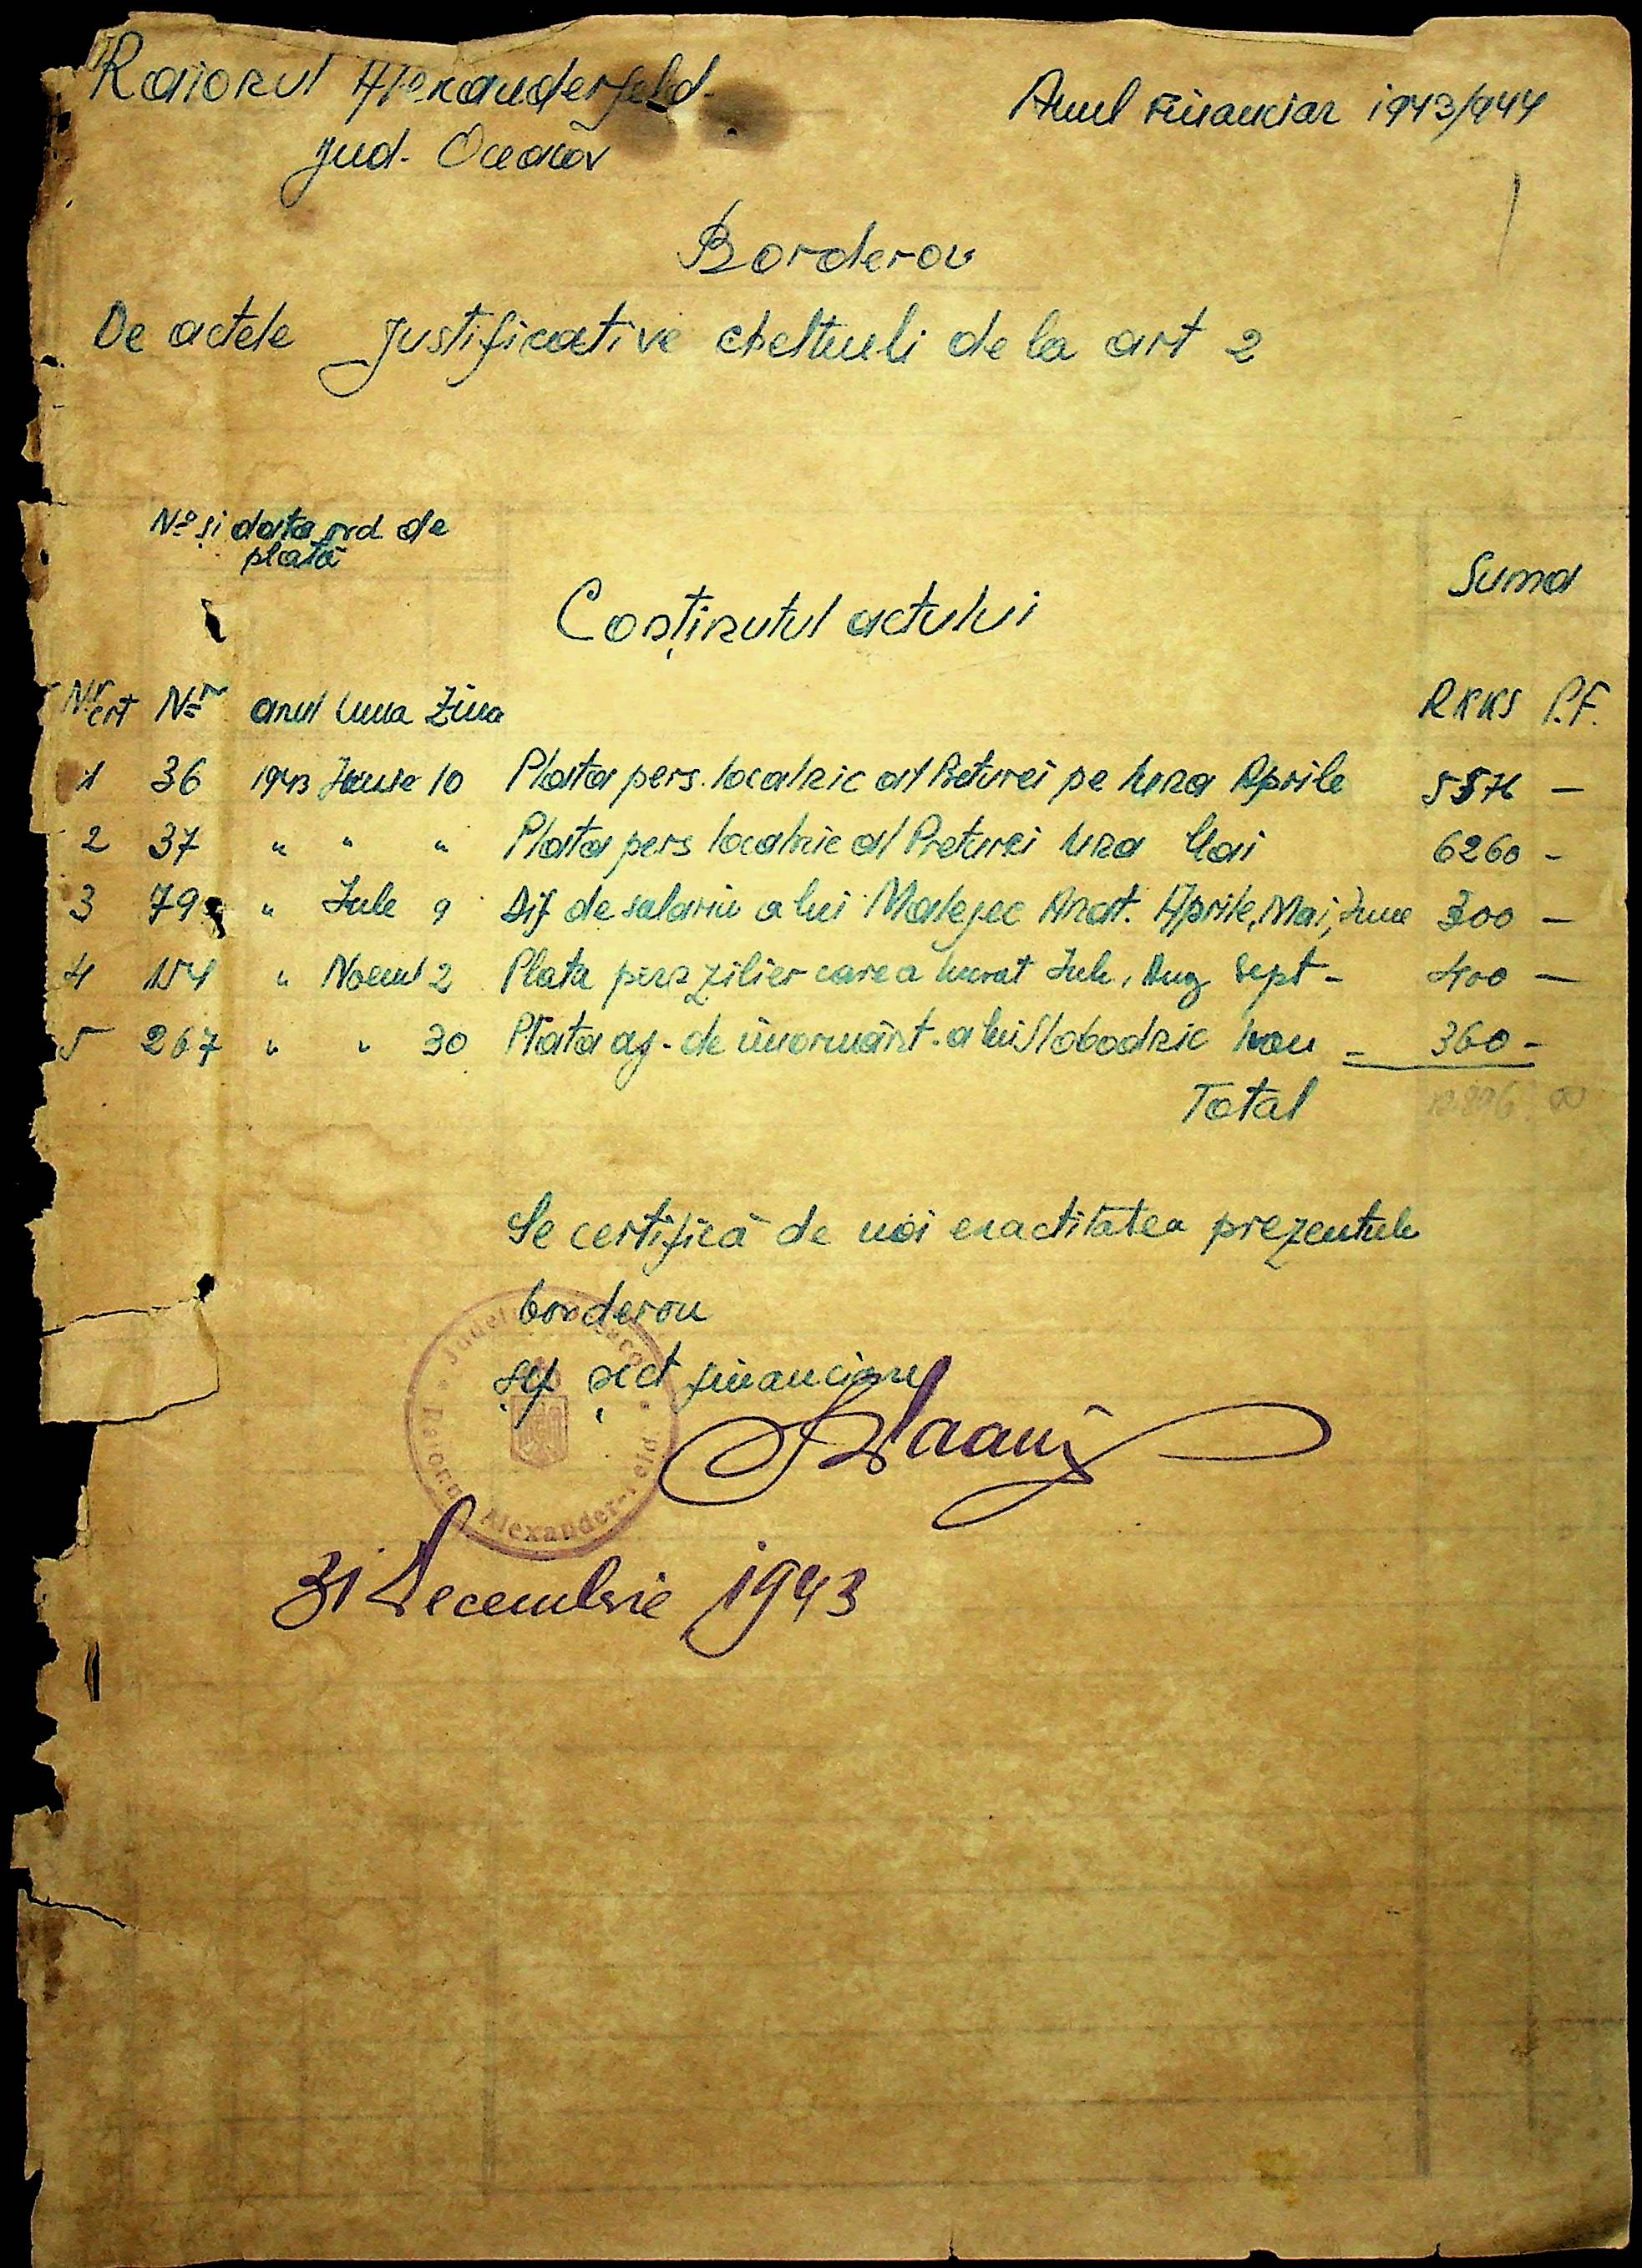 Raionul Alexanderfeld
Jud. Oceacov
Anul Financiar 1943/944
Borderou
De actele Justificative cheltueli de la art 2
No și data ord de
plată
Conținutul actului
Suma
Nr crt Nr anul luna Ziua RKKS P.F.
1 36 1943 Iunie 10 Plata pers. localnic al Preturei pe luna Aprile 5576 —
2 37 " " " Plata pers localnic al Preturei luna Mai 6260 -
3 79 " Iule 9 Dif de salariu a lui Anat. Aprile, Mai, Iunie 300 —
4 154 " 2 Plata zilier care a lucrat Iule, Aug Sept - 400 —
5 267 " " 30 Plata ag. de a lui Slobodnic Ivan - 360 -
Total 12.896 00
Se certifică de noi exactitatea prezentule
borderou
șef sect financiar
Raionul Alexander-Feld
31 Decembrie 1943